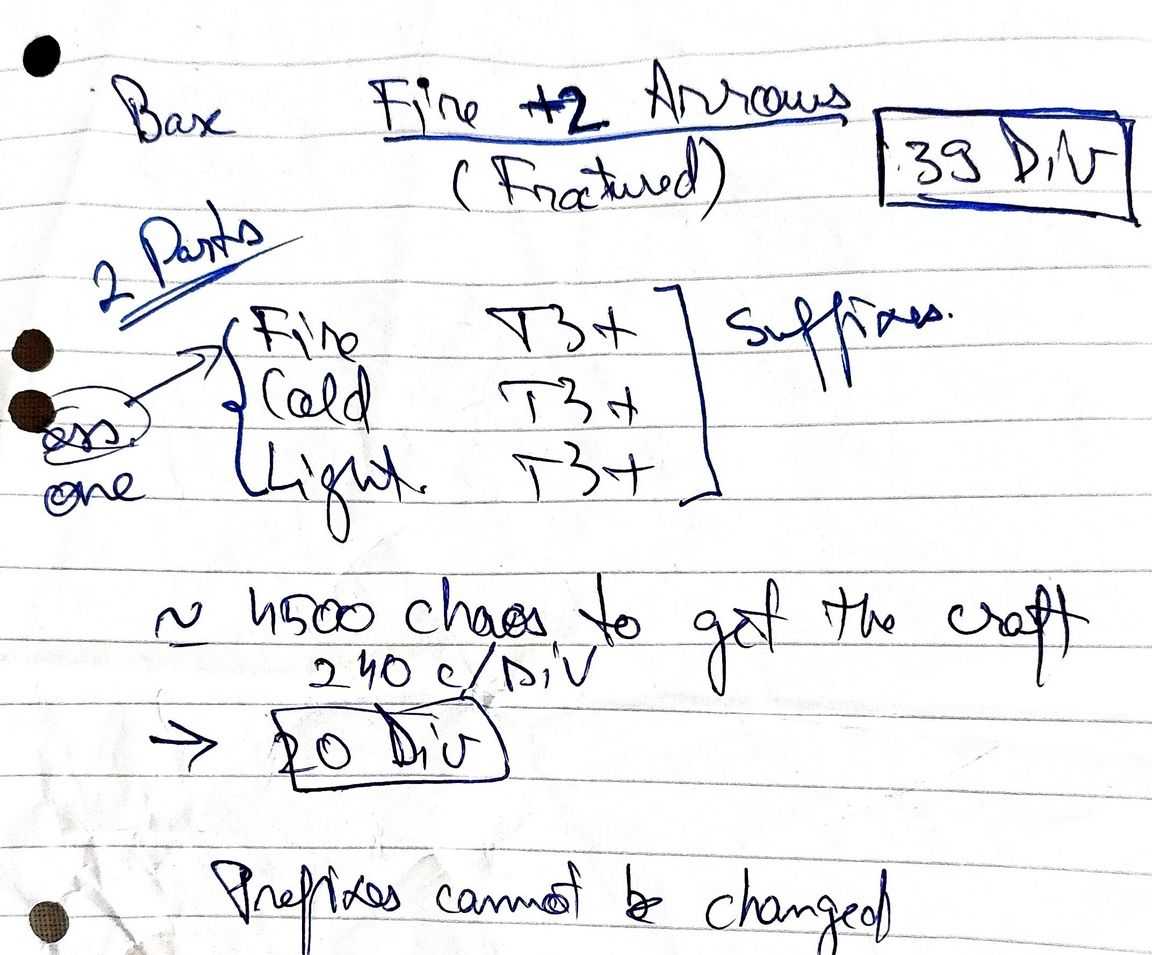 Base Fire +2 Arrows
(Fractured) 39 Div
2 Parts
Fire T3+ Suffixes.
Cold T3+
ess. Light. T3+
one
~ 4500 chaos to get the craft
240 c/Div
→ 20 Div
Prefixes cannot be changed